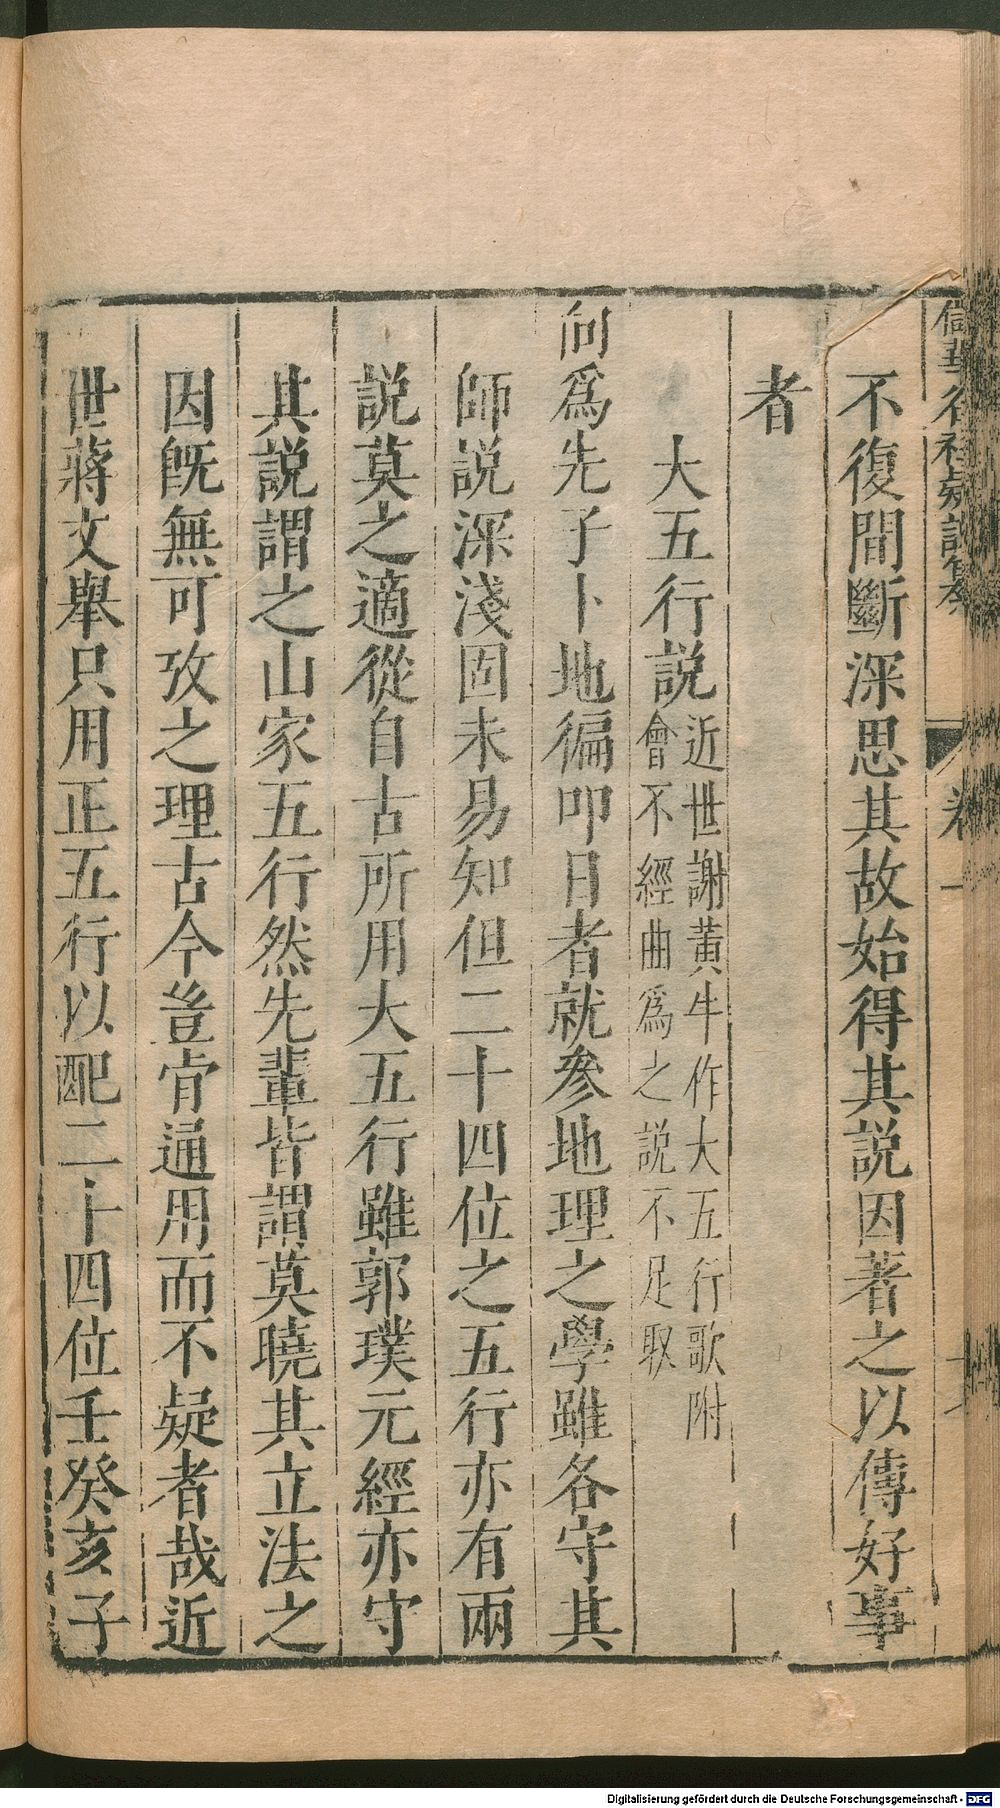 不復間斷深思其故始得其説因著之以傳好事
者
大五行説
近世謝黃牛作大五行歌附
會不經曲爲之説不足取
向爲先子卜地徧叩日者就參地理之學雖各守其
師説深淺固未易知但二十四位之五行亦有兩
説莫之適從自古所用大五行雖郭璞元經亦守
其説謂之山家五行然先輩皆謂莫曉其立法之
因既無可攷之理古今豈肯通用而不疑者哉近
世蔣文舉只用正五行以配二十四位壬癸亥子
Digitalisierung gefördert durch die Deutsche Forschungsgemeinschaft - DFG